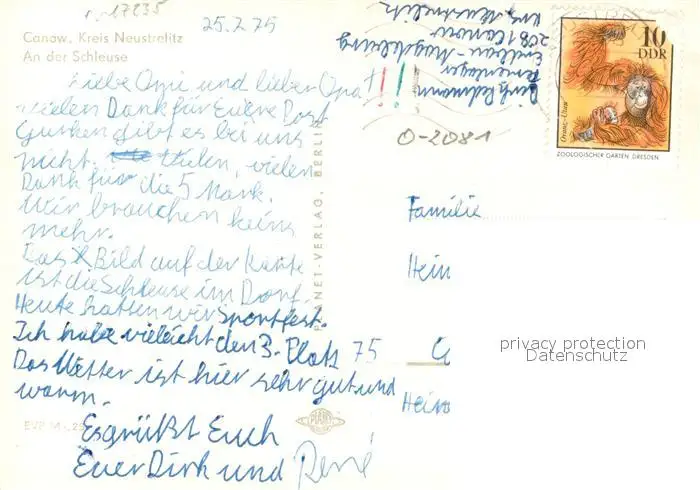 17235
25.7.75
Canow, Kreis Neustrelitz
An der Schleuse
Liebe Omi und lieber Opa!!!
vielen Dank für Euere Post
Gurken gibt es bei uns
nicht. vielen
Dank für die 5 Mark.
Wir brauchen keins
mehr.
Das Bild auf der Karte
ist die Schleuse im Dorf.
Heute hatten wir Sportfest.
Ich habe vieleicht den 3. Platz
Das Wetter ist hier sehr gut und
warm.
Es grüßt Euch
Euer Dirk und René
EVP M -,25
PLANET-VERLAG, BERLIN
PLANET
75
Dirk
Ferienlager
2081 Canow
Krs. Neustrelitz
O-2081
10
DDR
Orang-Utan
ZOOLOGISCHER GARTEN DRESDEN
Familie
Hein
privacy protection
Datenschutz